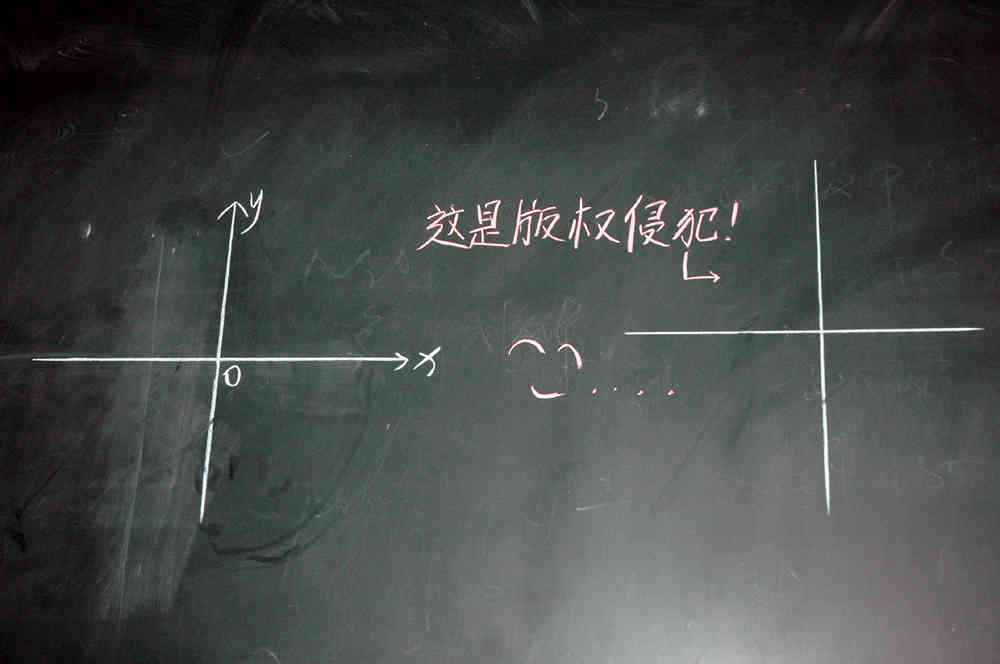 y
这是版权侵犯!
x
0